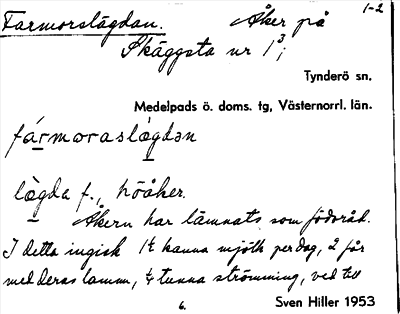 1-2
Farmorslägdan. Åker på
Skäggsta nr 1³;
Tynderö sn.
Medelpads ö. doms. tg, Västernorrl. län.
fármoraslògdən
lògda f., höåker.
Åkern har lämnats som födoråd.
I detta ingick 1½ kanna mjölk per dag, 2 får
med deras lamm, ¼ tunna strömming, ved till
6.
Sven Hiller 1953